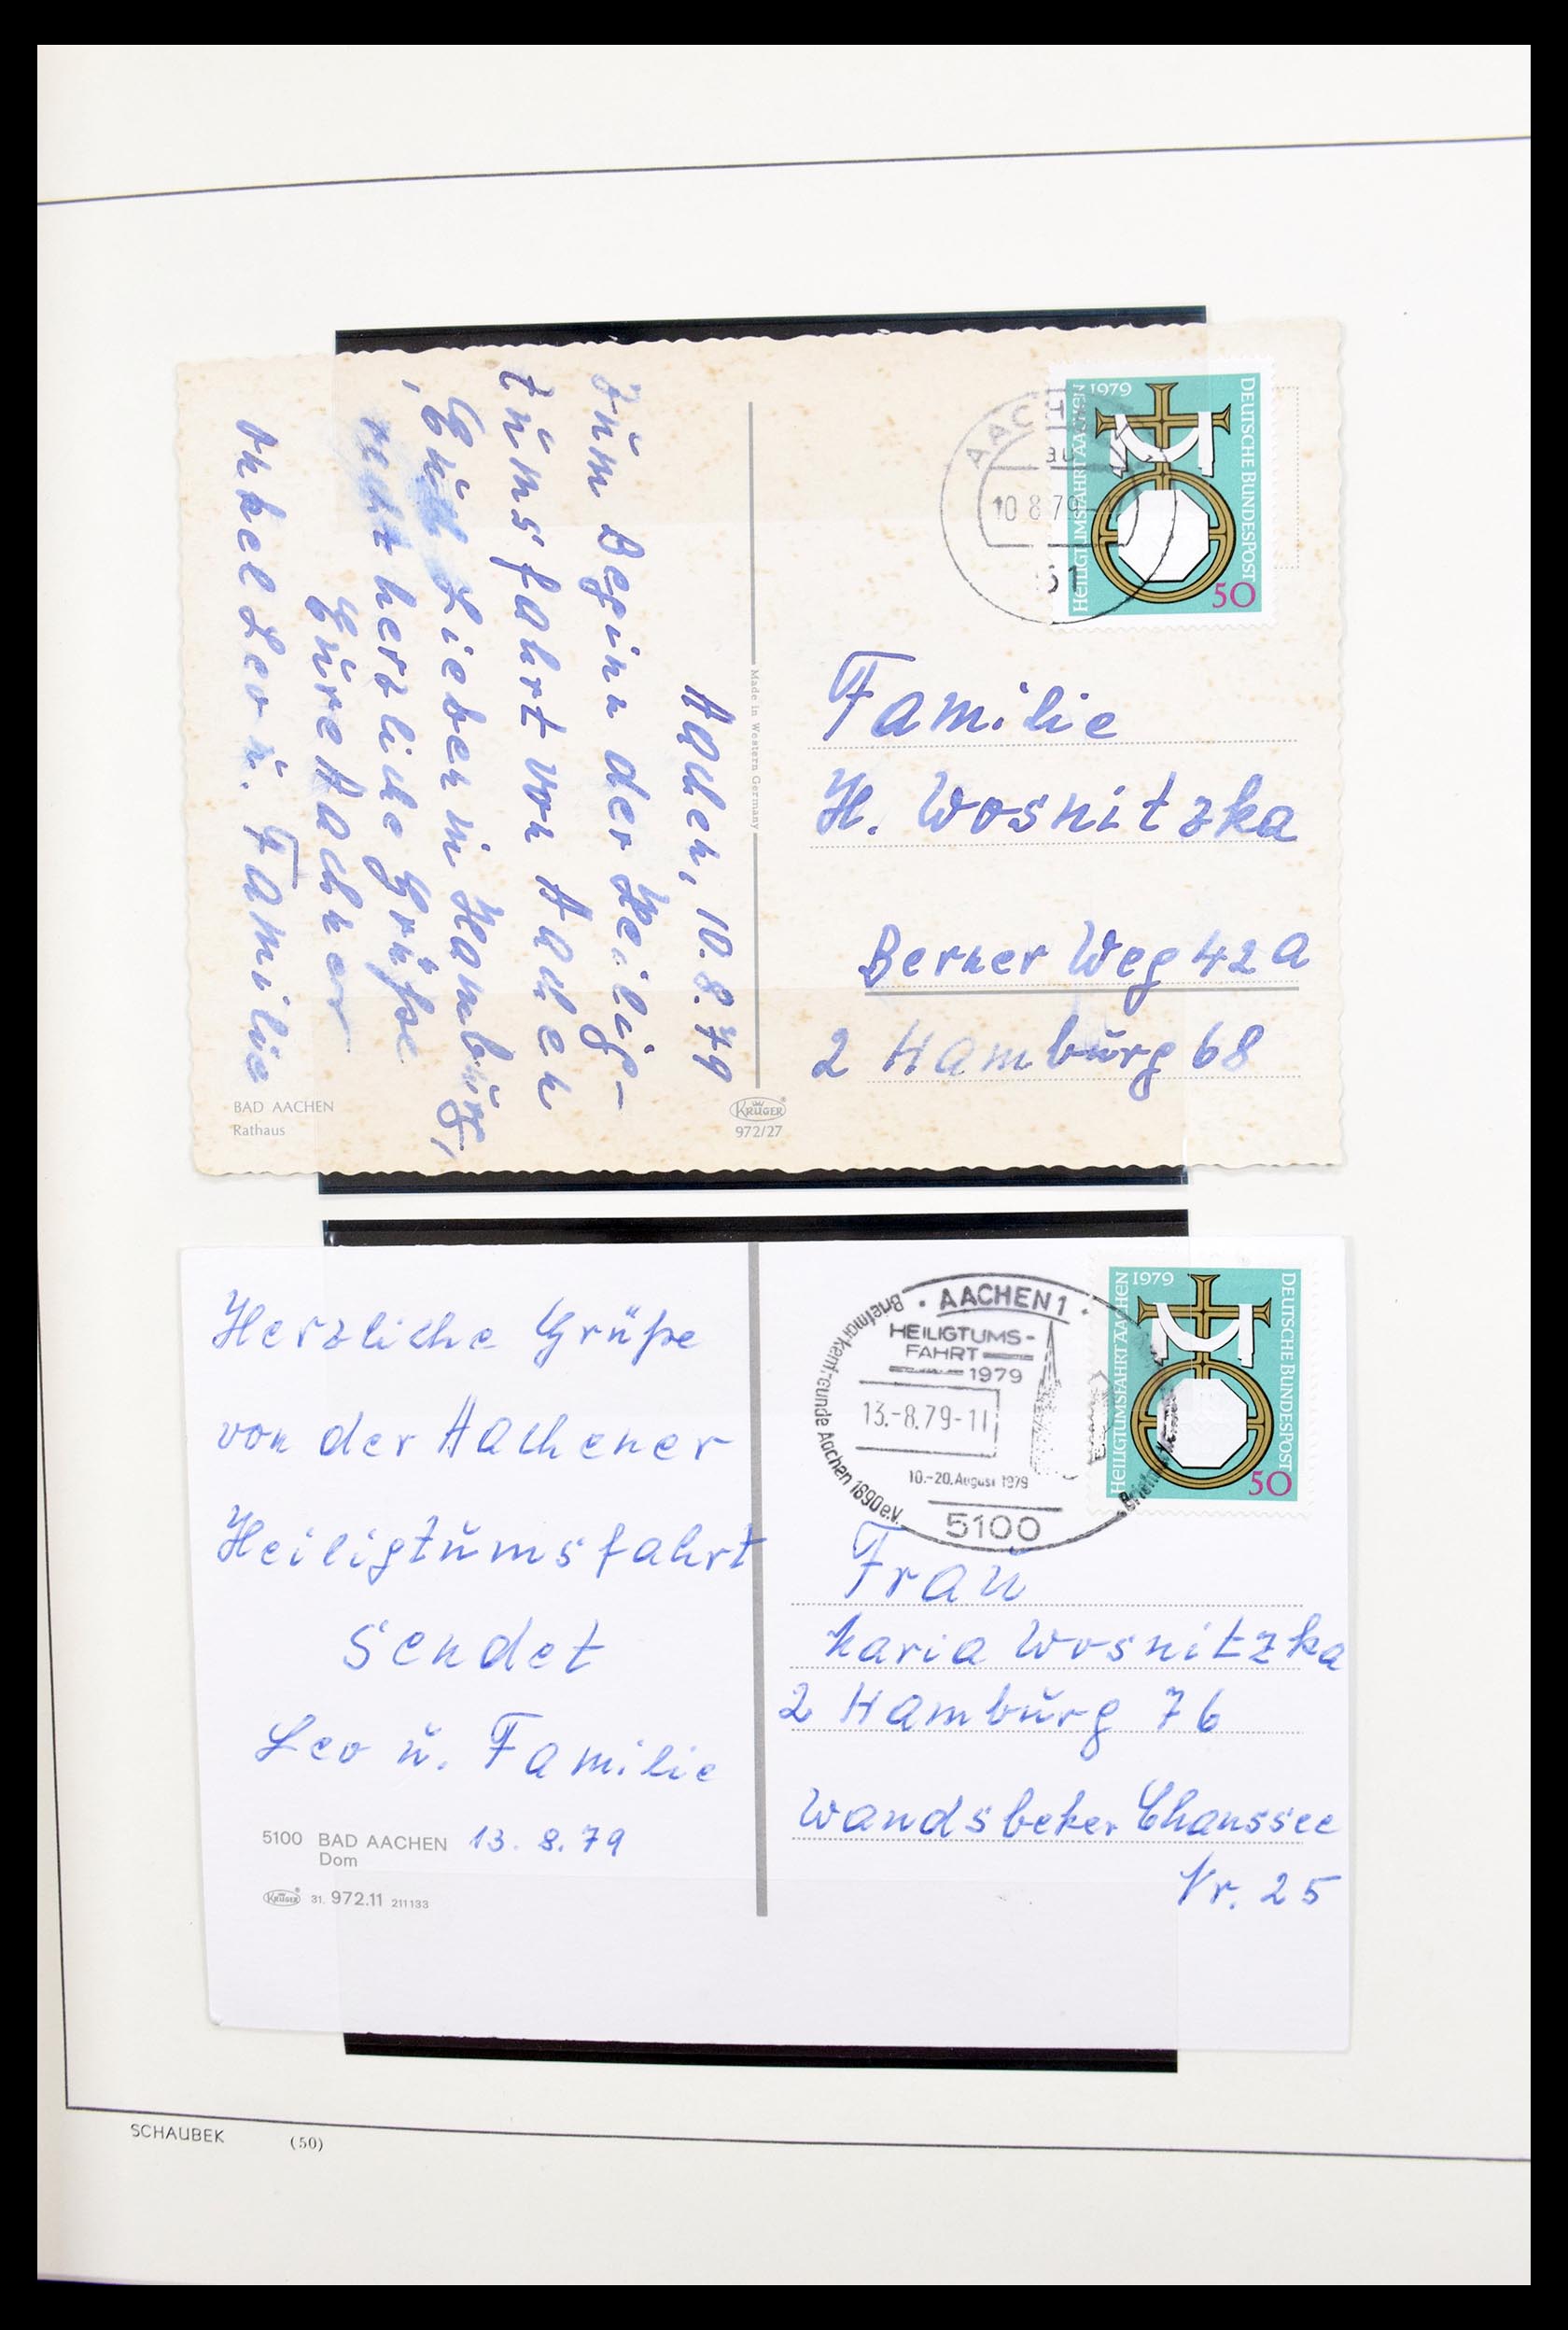 Aachen, 10.8.79
Zum Beginn der Heilig-
tumsfahrt von Aachen
Euch Lieben in Hamburg,
recht herzliche Grüße
Eure Aachener
Onkel Leo u. Familie
BAD AACHEN
Rathaus
Made in Western Germany
KRÜGER
972/27
AACHEN
10.8.79
51
1979
HEILIGTUMSFAHRT AACHEN
DEUTSCHE BUNDESPOST
50
Familie
H. Wosnitzka
Berner Weg 42 a
2 Hamburg 68
Herzliche Grüße
von der Aachener
Heiligtumsfahrt
sendet
Leo u. Familie
5100 BAD AACHEN 13. 8. 79
Dom
KRÜGER 31. 972.11 211133
AACHEN 1
HEILIGTUMS-
FAHRT
1979
13.-8.79-11
10.-20. August 1979
5100
Briefmarkenfreunde Aachen 1890 e.V.
1979
HEILIGTUMSFAHRT AACHEN
DEUTSCHE BUNDESPOST
50
Frau
Maria Wosnitzka
2 Hamburg 76
Wandsbeker Chaussee
Nr. 25
SCHAUBEK (50)